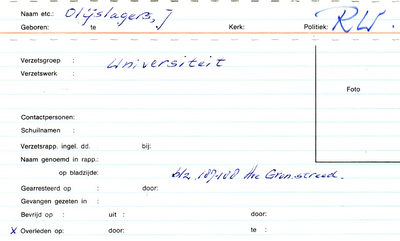 Naam etc.: Olijslagers, J
Geboren: te Kerk: Politiek: RW.
Verzetsgroep : Universiteit
Verzetswerk :
Foto
Contactpersonen:
Schuilnamen :
Verzetsrapp. ingel. dd. bij:
Naam genoemd in rapp.:
op bladzijde: blz 107-108
Gearresteerd op : door:
Gevangen gezeten in :
Bevrijd op : uit : door:
x Overleden op: door: te :